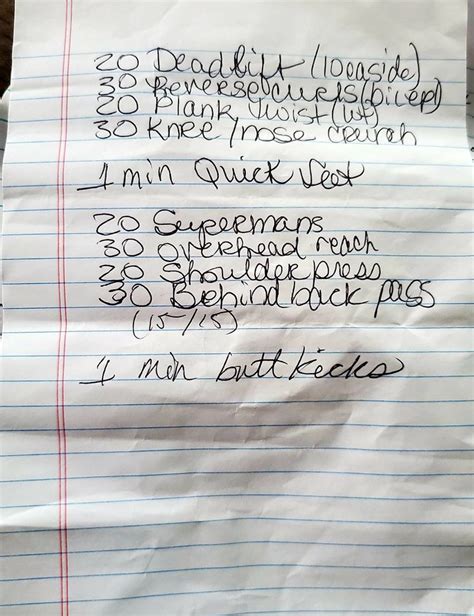 20 Deadlift (10 ea side)
30 Reverse curls (bicep)
20 Plank twist (wt)
30 Knee/nose crunch
1 min Quick feet
20 Supermans
30 overhead reach
20 Shoulder press
30 Behind back pass
(15/15)
1 min butt kicks